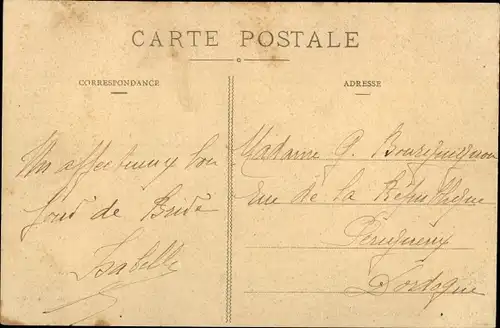 CARTE POSTALE
CORRESPONDANCE
ADRESSE
Un affectueux bon
jour de
Isabelle
Madame G. Bourguignon
rue de la République
Périgueux
Dordogne